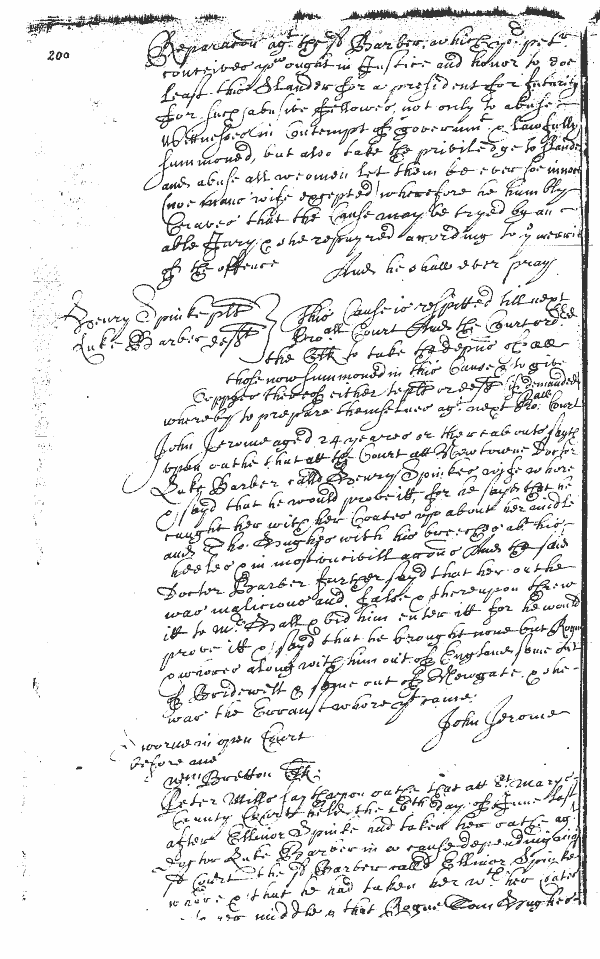 200
Reparacon agt the sd Barber, which yor petr
conceives ought in Justice and honor to doe
least this Slander for a president for futurity
for such abusive fellowes, not only to abuse
Wittnesses in Contempt of governmt & lawfully
summoned, but also take the priviledge to slander
and abuse all weomen let them be ever soe innocent
(noe mans wife excepted) wherefore he humbly
Craves that the Cause may be tryed by an
able Jury & he repayred according to
of the offence And he shall ever pray
Henry Spinke plt
Luke Barber defft
This Cause is respitted till next
Proall Court And the Court ord
the Clk to take the depns of all
those now summoned in this Cause & to give
Coppyes thereof either to plt or defft if demanded
whereby to prepare themselves agt next Proall Court
John Jerome aged 24 yeares or thereabouts sayth
upon oathe that att the Court att Newtowne Doctor
Luke Barber calld Henry Spinkes wife whore
& sayd that he would prove itt, for he sayes that he
caught her with her Coates up about her middle
and Tho: Hughes with his breeches att his
heeles in most uncivill actions And the said
Doctor Barber further sayd that her oathe
was malicious and false & thereupon threw
itt to Mr Hall & bid him enter itt for he would
prove itt & sayd that he brought none but Rogues
& whores along with him out of England some out
of Bridewell & some out of Newgate & she
was the Errants whore yt came.
John Jerome
Sworne in open Court
before me
Willm Bretton Clk
Peter Mills sayth upon oathe that att St Maryes
County Court held the day of June last
after Ellinor Spinke had taken her oathe agt
Doctor Luke Barber in a cause depending in
sd Court the sd Barber calld Ellinor Spinke
whore & that he had taken her wth her coates
her middle & that Rogue Tom Hughes